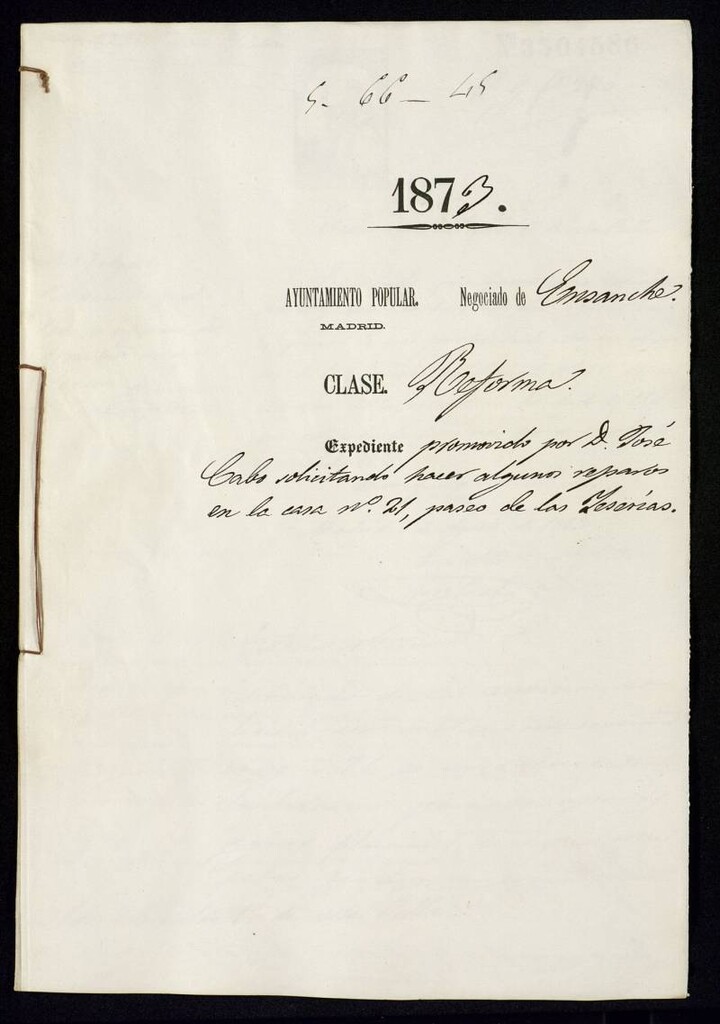 5- 66 - 45
1873.
AYUNTAMIENTO POPULAR. Negociado de Ensanche.
MADRID.
CLASE. Reforma.
Expediente promovido por D. José
Cabo solicitando hacer algunos reparos
en la casa nº. 21, paseo de las Yeserías.